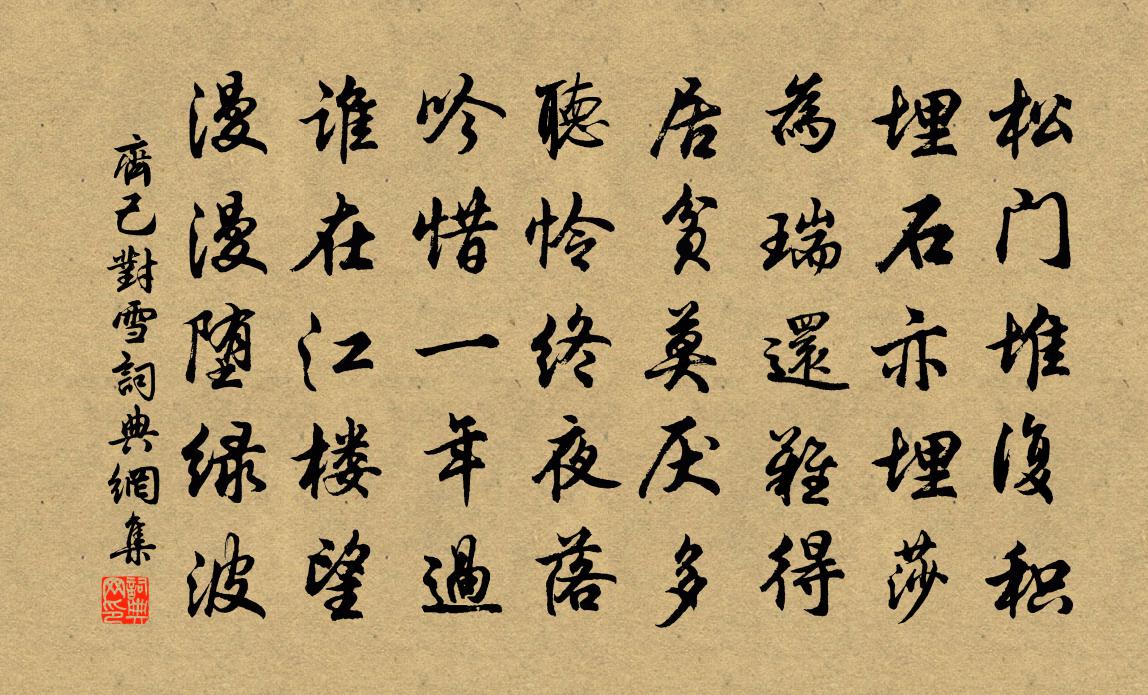 松门堆復积
埋石亦埋莎
為瑞還難得
居贫莫厌多
聽怜终夜落
吟惜一年過
谁在江楼望
漫漫堕绿波
齊己對雪詞典網集
詞典网印